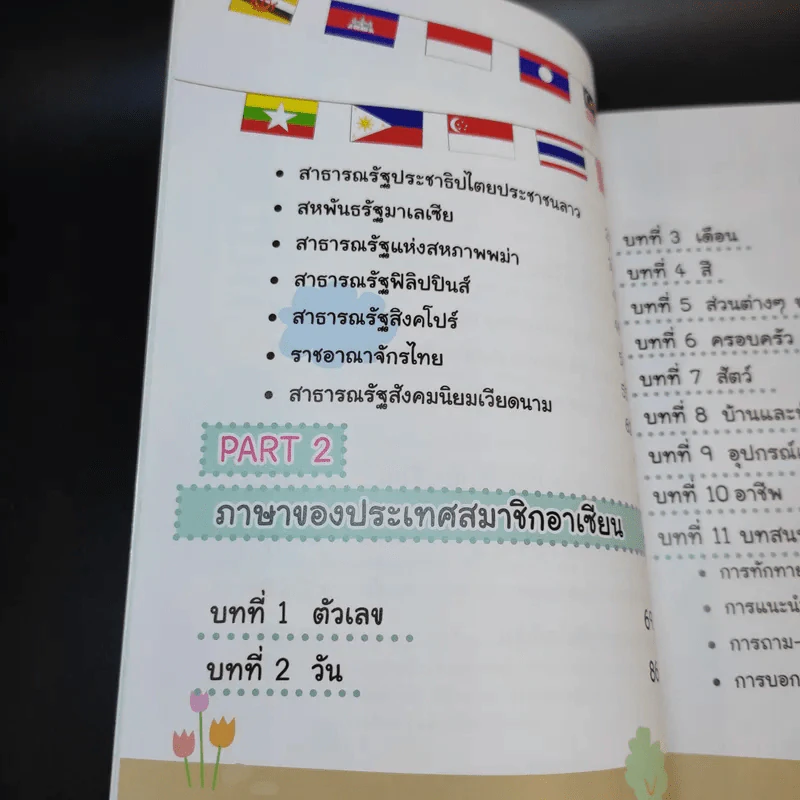 • สาธารณรัฐประชาธิปไตยประชาชนลาว
• สหพันธรัฐมาเลเซีย
• สาธารณรัฐแห่งสหภาพพม่า
• สาธารณรัฐฟิลิปปินส์
• สาธารณรัฐสิงคโปร์
• ราชอาณาจักรไทย
• สาธารณรัฐสังคมนิยมเวียดนาม
PART 2
ภาษาของประเทศสมาชิกอาเซียน
บทที่ 1 ตัวเลข 69
บทที่ 2 วัน 86
บทที่ 3 เดือน
บทที่ 4 สี
บทที่ 5 ส่วนต่างๆ
บทที่ 6 ครอบครัว
บทที่ 7 สัตว์
บทที่ 8 บ้านและ
บทที่ 9 อุปกรณ์
บทที่ 10 อาชีพ
บทที่ 11 บทสน
• การทักทาย
• การแนะนำ
• การถาม-
• การบอก